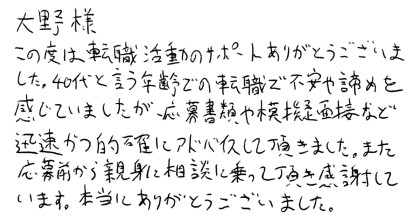 大野様
この度は転職活動のサポートありがとうございま
した。40代と言う年齢での転職で不安や諦めを
感じていましたが、応募書類や模擬面接など
迅速かつ的確にアドバイスして頂きました。また
応募前から親身に相談に乗って頂き感謝して
います。本当にありがとうございました。